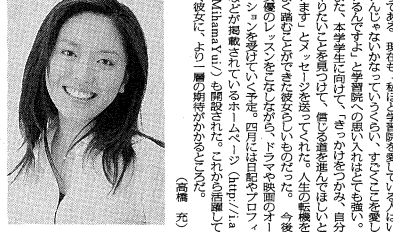 である。現在も、「私ほど学習院を愛している人はい
んじゃないかなっていうくらい、すごくここを愛し
るんですよ」と学習院への思い入れはとても強い。
だ、本学学生に向けて、「きっかけをつかみ、自分
りたいことを見つけて、信じる道を進んでほしいと
ます」とメッセージを送ってくれた。人生の転機を
く踏むことができた彼女らしいものだった。　今後
優のレッスンをこなしながら、ドラマや映画のオー
ションを受けていく予定。四月には日記やプロフィ
どが掲載されているホームページ（http://i.a
MihamaYui/）も開設された。これから活躍して
彼女に、より一層の期待がかかるところだ。
（高橋　充）